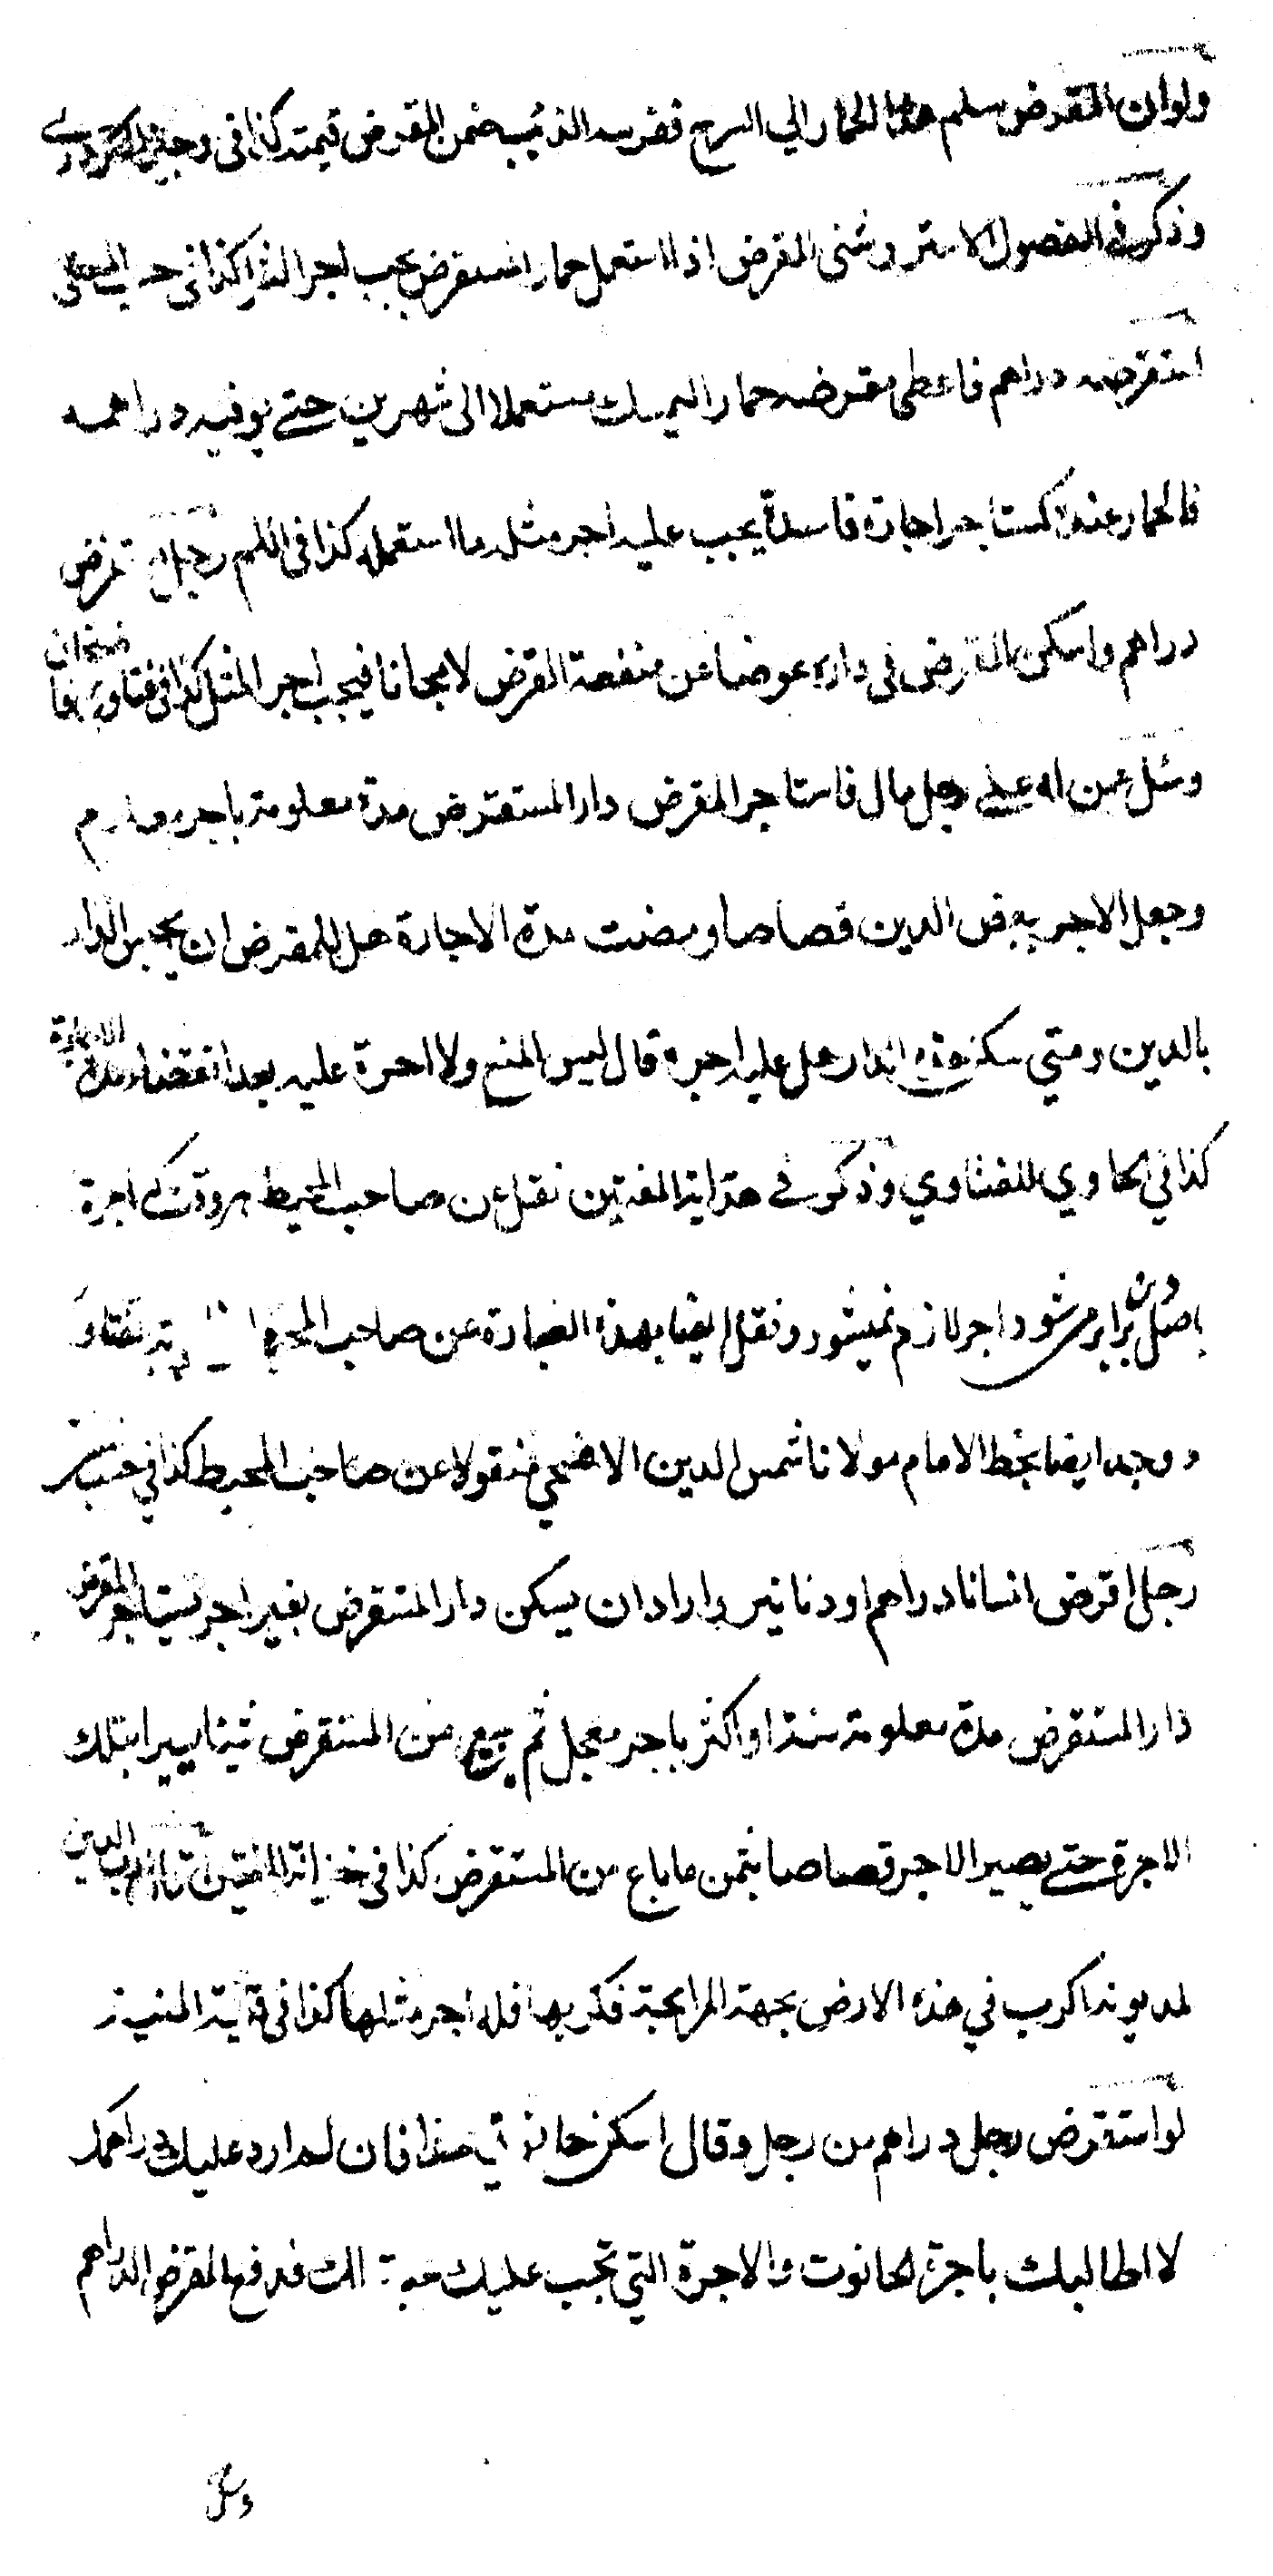 ولوان المقرض سلم هذا الحمار الي السرح فقرسه الذئب ضمن المقرض قيمته كذا في وجيز الكردري
وذكر في الفصول الاستروشني المقرض اذا استعمل حمار المستقرض يجب اجر المثل كذا في
استقرض دراهم فاعطى مقرضه حمارا ليمسك مستعملا الى شهرين حتى يوفيه دراهمه
فالحمار عنده كمستاجر اجارة فاسدة يجب عليه اجر مثله ما استعمله كذا في رجل استقرض
دراهم واسكن المقرض في داره عوضا عن منفعة القرض لا مجانا فيجب اجر المثل كذا في فتاوى قاضيخان
وسئل عمن له على رجل مال فاستاجر المقرض دار المستقرض مدة معلومة باجر معلوم
وجعل الاجر ببعض الدين قصاصا ومضت مدة الاجارة هل للمقرض ان يحبس الدار
بالدين ومتي سكن هذه الدار هل عليه اجرة قال ليس المنع ولا اجرة عليه بعد انقضاء مدة الاجارة
كذا في الحاوي للفتاوي وذكر في هداية المفتين نقل عن صاحب المحيط هر وقت كه اجرة
باصل دين برابر مي شود اجر لازم نميشود ونقل ايضا بهذه العبارة عن صاحب المحيط
ووجد ايضا بخط الامام مولانا شمس الدين منقولا عن صاحب المحيط كذا في
رجل اقرض انسانا دراهم او دنانير واراد ان يسكن دار المستقرض بغير اجر يستاجر المقرض
دار المستقرض مدة معلومة سنة او اكثر باجر معجل ثم يبيع من المستقرض شيئا يسيرا بتلك
الاجرة حتى يصير الاجر قصاصا بثمن ما باع من المستقرض كذا في خزانة المفتين قال رب الدين
لمديونه اكرب في هذه الارض بجهة المرابحة فكربها فله اجر مثلها كذا في قنية المنية
لو استقرض رجل دراهم من رجل وقال اسكن حانوتي هذا فان لم ارد عليك دراهمك
لا اطالبك باجرة الحانوت والاجرة التي تجب عليك هبة لك فدفع المقرض الدراهم